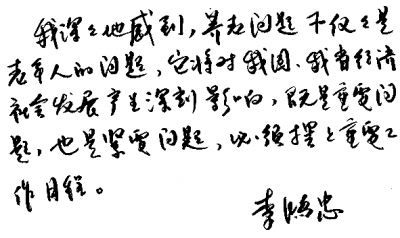 我深深地感到，养老问题不仅仅是
老年人的问题，它将对我国、我省经济
社会发展产生深刻影响，既是重要问
题，也是紧要问题，必须摆上重要工
作日程。
李
忠